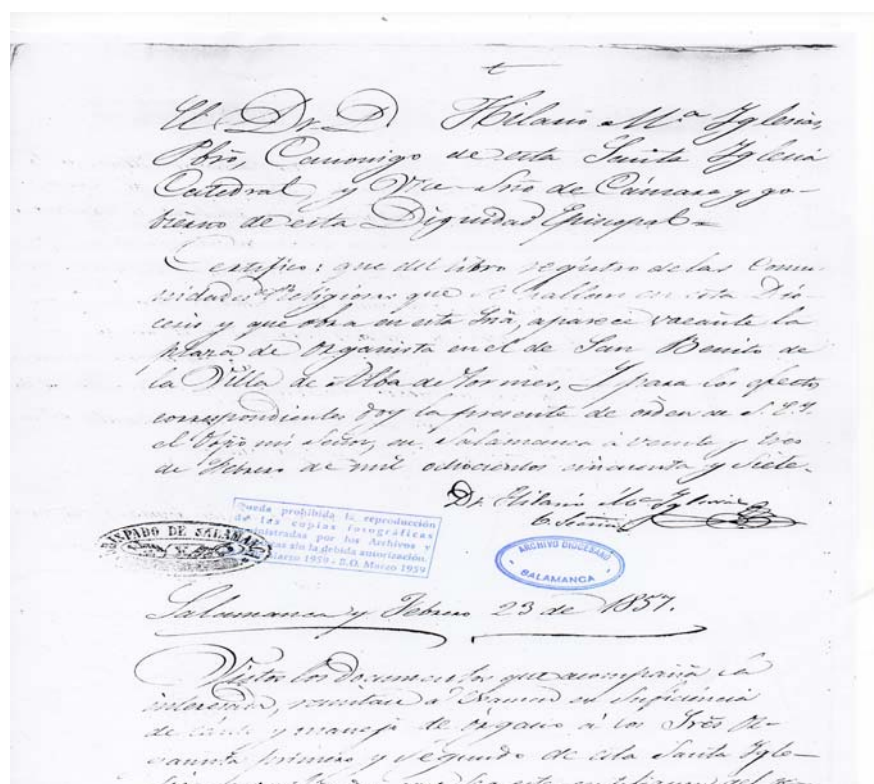 El Dr. D. Hilario Mª Yglesias,
Pbrô, Canonigo de esta Santa Yglesia
Catedral, y Vice-Sriô de Cámara y go-
bierno de esta Dignidad Episcopal=
Certifico: que del libro registro de las Comu-
nidades Religiosas que se hallan en esta Dió-
cesis y que obra en esta Sriâ, aparece vacante la
plaza de Organista en el de San Benito de
la Villa de Alba de Tormes, Y para los efectos
correspondientes doy la presente de orden de S. E. Y.
el Obpô mi Señor, en Salamanca á veinte y tres
de Febrero de mil ochocientos cincuenta y siete.
Dr. Hilario Mª Yglesias
OBISPADO DE SALAMANCA
Queda prohibida la reproducción
de las copias fotográficas
suministradas por los Archivos y
sin la debida autorización.
Marzo 1959 - B.O. Marzo 1959
ARCHIVO DIOCESANO
SALAMANCA
Salamanca y Febrero 23 de 1857.
Vistos los Documentos que acompaña la
interesada, á Examen en suficiencia
de canto y manejo de organo á los Sres Or-
ganista primero y segundo de esta Santa Ygle-